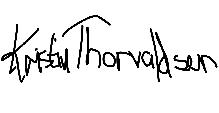 Kristin Thorvaldsen